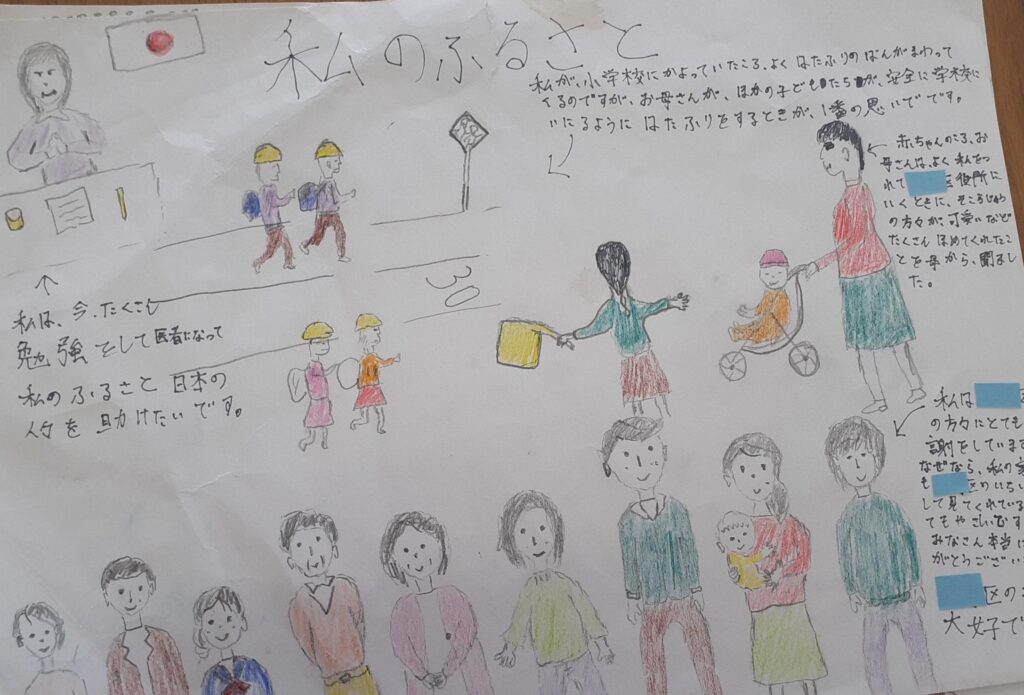 私のふるさと
私が、小学校にかよっていたころ、よくはたふりのばんがまわって
くるのですが、お母さんが、ほかの子どもたちが、安全に学校に
いにるように はたふりをするときが、1番の思いでです。
赤ちゃんのころ、お
母さんは、よく私をつ
れて 区役所に
いくときに、そこらじゅう
の方々が、可愛いなど
たくさんほめてくれたこ
とを母から、聞きまし
た。
30
私は、今、たくさん
勉強をして医者になって
私のふるさと日本の
人々を助けたいです。
私は
の方々にとても
謝をしています
なぜなら、私の家
も 区のいちい
して見てくれている
てもやさいです
みなさん本当に
がとうござい
区の
大好で